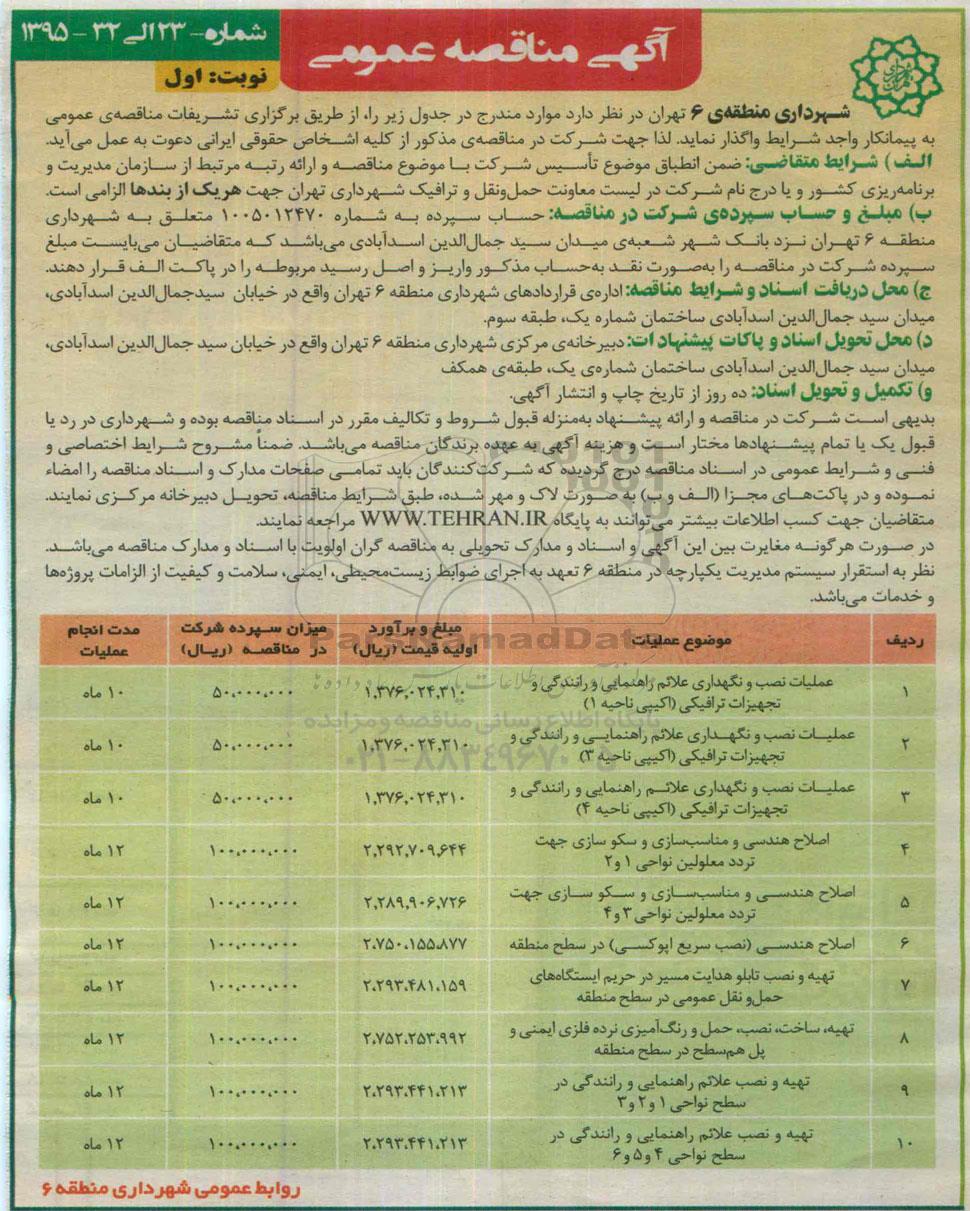 آگهی مناقصه عمومی
شماره- ۲۳ الی ۳۲ - ۱۳۹۵
نوبت: اول
شهرداری منطقه‌ی ۶ تهران در نظر دارد موارد مندرج در جدول زیر را، از طریق برگزاری تشریفات مناقصه‌ی عمومی
به پیمانکار واجد شرایط واگذار نماید. لذا جهت شرکت در مناقصه‌ی مذکور از کلیه اشخاص حقوقی ایرانی دعوت به عمل می‌آید.
الف) شرایط متقاضی: ضمن انطباق موضوع تأسیس شرکت با موضوع مناقصه و ارائه رتبه مرتبط از سازمان مدیریت و
برنامه‌ریزی کشور و یا درج نام شرکت در لیست معاونت حمل‌ونقل و ترافیک شهرداری تهران جهت هریک از بندها الزامی است.
ب) مبلغ و حساب سپرده‌ی شرکت در مناقصه: حساب سپرده به شماره ۱۰۰۵۰۱۲۴۷۰ متعلق به شهرداری
منطقه ۶ تهران نزد بانک شهر شعبه‌ی میدان سید جمال‌الدین اسدآبادی می‌باشد که متقاضیان می‌بایست مبلغ
سپرده شرکت در مناقصه را به‌صورت نقد به‌حساب مذکور واریز و اصل رسید مربوطه را در پاکت الف قرار دهند.
ج) محل دریافت اسناد و شرایط مناقصه: اداره‌ی قراردادهای شهرداری منطقه ۶ تهران واقع در خیابان سیدجمال‌الدین اسدآبادی،
میدان سید جمال‌الدین اسدآبادی ساختمان شماره یک، طبقه سوم.
د) محل تحویل اسناد و پاکات پیشنهادات: دبیرخانه‌ی مرکزی شهرداری منطقه ۶ تهران واقع در خیابان سید جمال‌الدین اسدآبادی،
میدان سید جمال‌الدین اسدآبادی ساختمان شماره‌ی یک، طبقه‌ی همکف
و) تکمیل و تحویل اسناد: ده روز از تاریخ چاپ و انتشار آگهی.
بدیهی است شرکت در مناقصه و ارائه پیشنهاد به‌منزله قبول شروط و تکالیف مقرر در اسناد مناقصه بوده و شهرداری در رد یا
قبول یک یا تمام پیشنهادها مختار است و هزینه آگهی به عهده برندگان مناقصه می‌باشد. ضمناً مشروح شرایط اختصاصی و
فنی و شرایط عمومی در اسناد مناقصه درج گردیده که شرکت‌کنندگان باید تمامی صفحات مدارک و اسناد مناقصه را امضاء
نموده و در پاکت‌های مجزا (الف و ب) به صورت لاک و مهر شده، طبق شرایط مناقصه، تحویل دبیرخانه مرکزی نمایند.
متقاضیان جهت کسب اطلاعات بیشتر می‌توانند به پایگاه WWW.TEHRAN.IR مراجعه نمایند.
در صورت هرگونه مغایرت بین این آگهی و اسناد و مدارک تحویلی به مناقصه گران اولویت با اسناد و مدارک مناقصه می‌باشد.
نظر به استقرار سیستم مدیریت یکپارچه در منطقه ۶ تعهد به اجرای ضوابط زیست‌محیطی، ایمنی، سلامت و کیفیت از الزامات پروژه‌ها
و خدمات می‌باشد.
ردیف موضوع عملیات مبلغ و برآورد اولیه قیمت (ریال) میزان سپرده شرکت در مناقصه (ریال) مدت انجام عملیات
۱ عملیات نصب و نگهداری علائم راهنمایی و رانندگی و تجهیزات ترافیکی (اکیپی ناحیه ۱) ۱,۳۷۶,۰۲۴,۳۱۰ ۵۰,۰۰۰,۰۰۰ ۱۰ ماه
۲ عملیات نصب و نگهداری علائم راهنمایی و رانندگی و تجهیزات ترافیکی (اکیپی ناحیه ۳) ۱,۳۷۶,۰۲۴,۳۱۰ ۵۰,۰۰۰,۰۰۰ ۱۰ ماه
۳ عملیات نصب و نگهداری علائم راهنمایی و رانندگی و تجهیزات ترافیکی (اکیپی ناحیه ۴) ۱,۳۷۶,۰۲۴,۳۱۰ ۵۰,۰۰۰,۰۰۰ ۱۰ ماه
۴ اصلاح هندسی و مناسب‌سازی و سکو سازی جهت تردد معلولین نواحی ۱ و۲ ۲,۲۹۲,۷۰۹,۶۴۴ ۱۰۰,۰۰۰,۰۰۰ ۱۲ ماه
۵ اصلاح هندسی و مناسب‌سازی و سکو سازی جهت تردد معلولین نواحی ۳ و ۴ ۲,۲۸۹,۹۰۶,۷۲۶ ۱۰۰,۰۰۰,۰۰۰ ۱۲ ماه
۶ اصلاح هندسی (نصب سریع اپوکسی) در سطح منطقه ۲،۷۵۰،۱۵۵،۸۷۷ ۱۰۰,۰۰۰,۰۰۰ ۱۲ ماه
۷ تهیه و نصب تابلو هدایت مسیر در حریم ایستگاه‌های حمل‌و نقل عمومی در سطح منطقه ۲،۲۹۳،۴۸۱،۱۵۹ ۱۰۰,۰۰۰,۰۰۰ ۱۲ ماه
۸ تهیه، ساخت، نصب، حمل و رنگ‌آمیزی نرده فلزی ایمنی و پل هم‌سطح در سطح منطقه ۲،۷۵۲،۲۵۳،۹۹۲ ۱۰۰,۰۰۰,۰۰۰ ۱۲ ماه
۹ تهیه و نصب علائم راهنمایی و رانندگی در سطح نواحی ۱ و ۲ و ۳ ۲،۲۹۳،۴۴۱،۲۱۳ ۱۰۰,۰۰۰,۰۰۰ ۱۲ ماه
۱۰ تهیه و نصب علائم راهنمایی و رانندگی در سطح نواحی ۴ و ۵ و ۶ ۲،۲۹۳،۴۴۱،۲۱۳ ۱۰۰,۰۰۰,۰۰۰ ۱۲ ماه
روابط عمومی شهرداری منطقه ۶
ParsNamadData
پایگاه اطلاع رسانی مناقصه و مزایده
۰۲۱-۸۸۳۴۹۶۷۰-۵